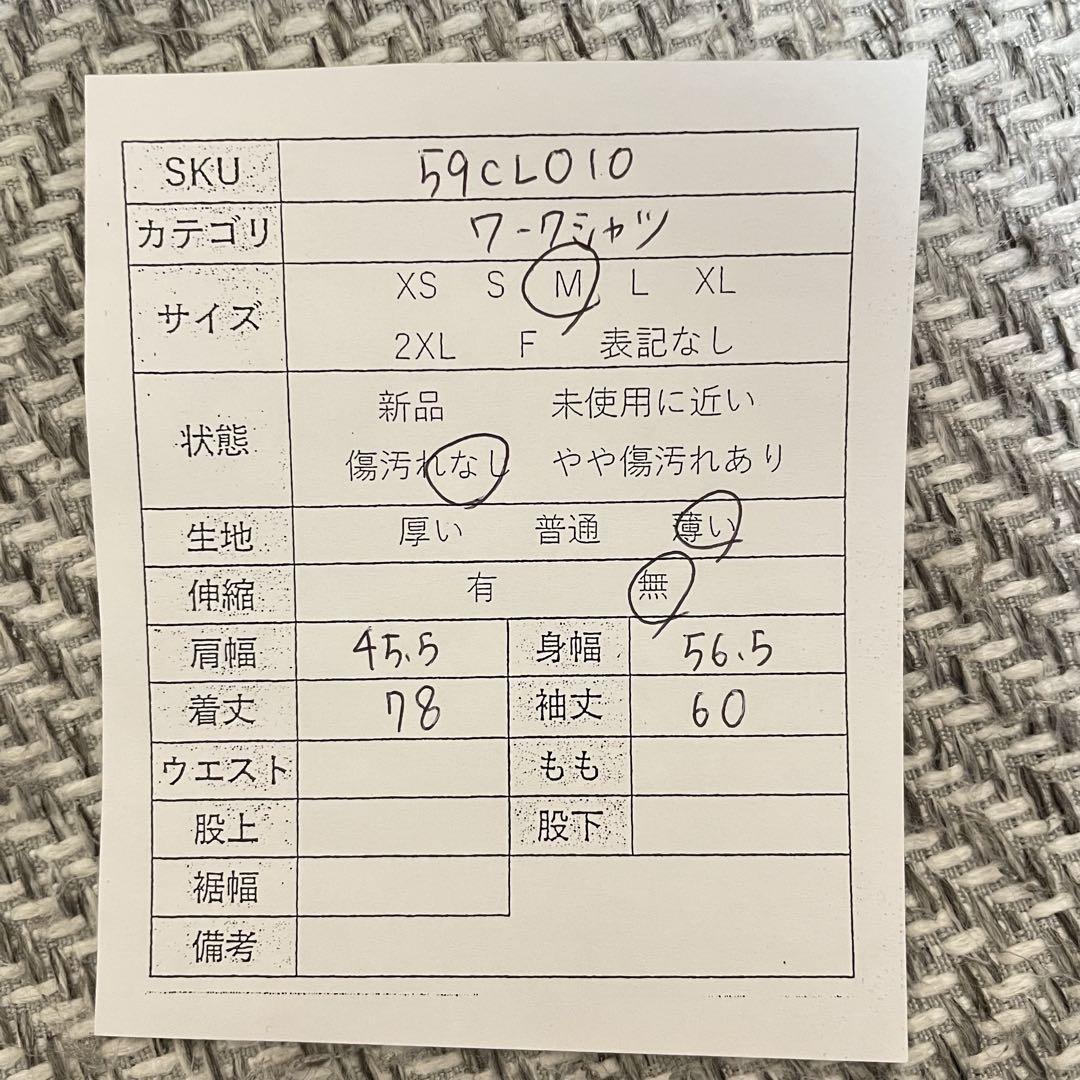 SKU 59CL010
カテゴリ ワークシャツ
サイズ XS S M L XL
2XL F 表記なし
状態 新品 未使用に近い
傷汚れなし やや傷汚れあり
生地 厚い 普通 薄い
伸縮 有 無
肩幅 45.5 身幅 56.5
着丈 78 袖丈 60
ウエスト もも
股上 股下
裾幅
備考